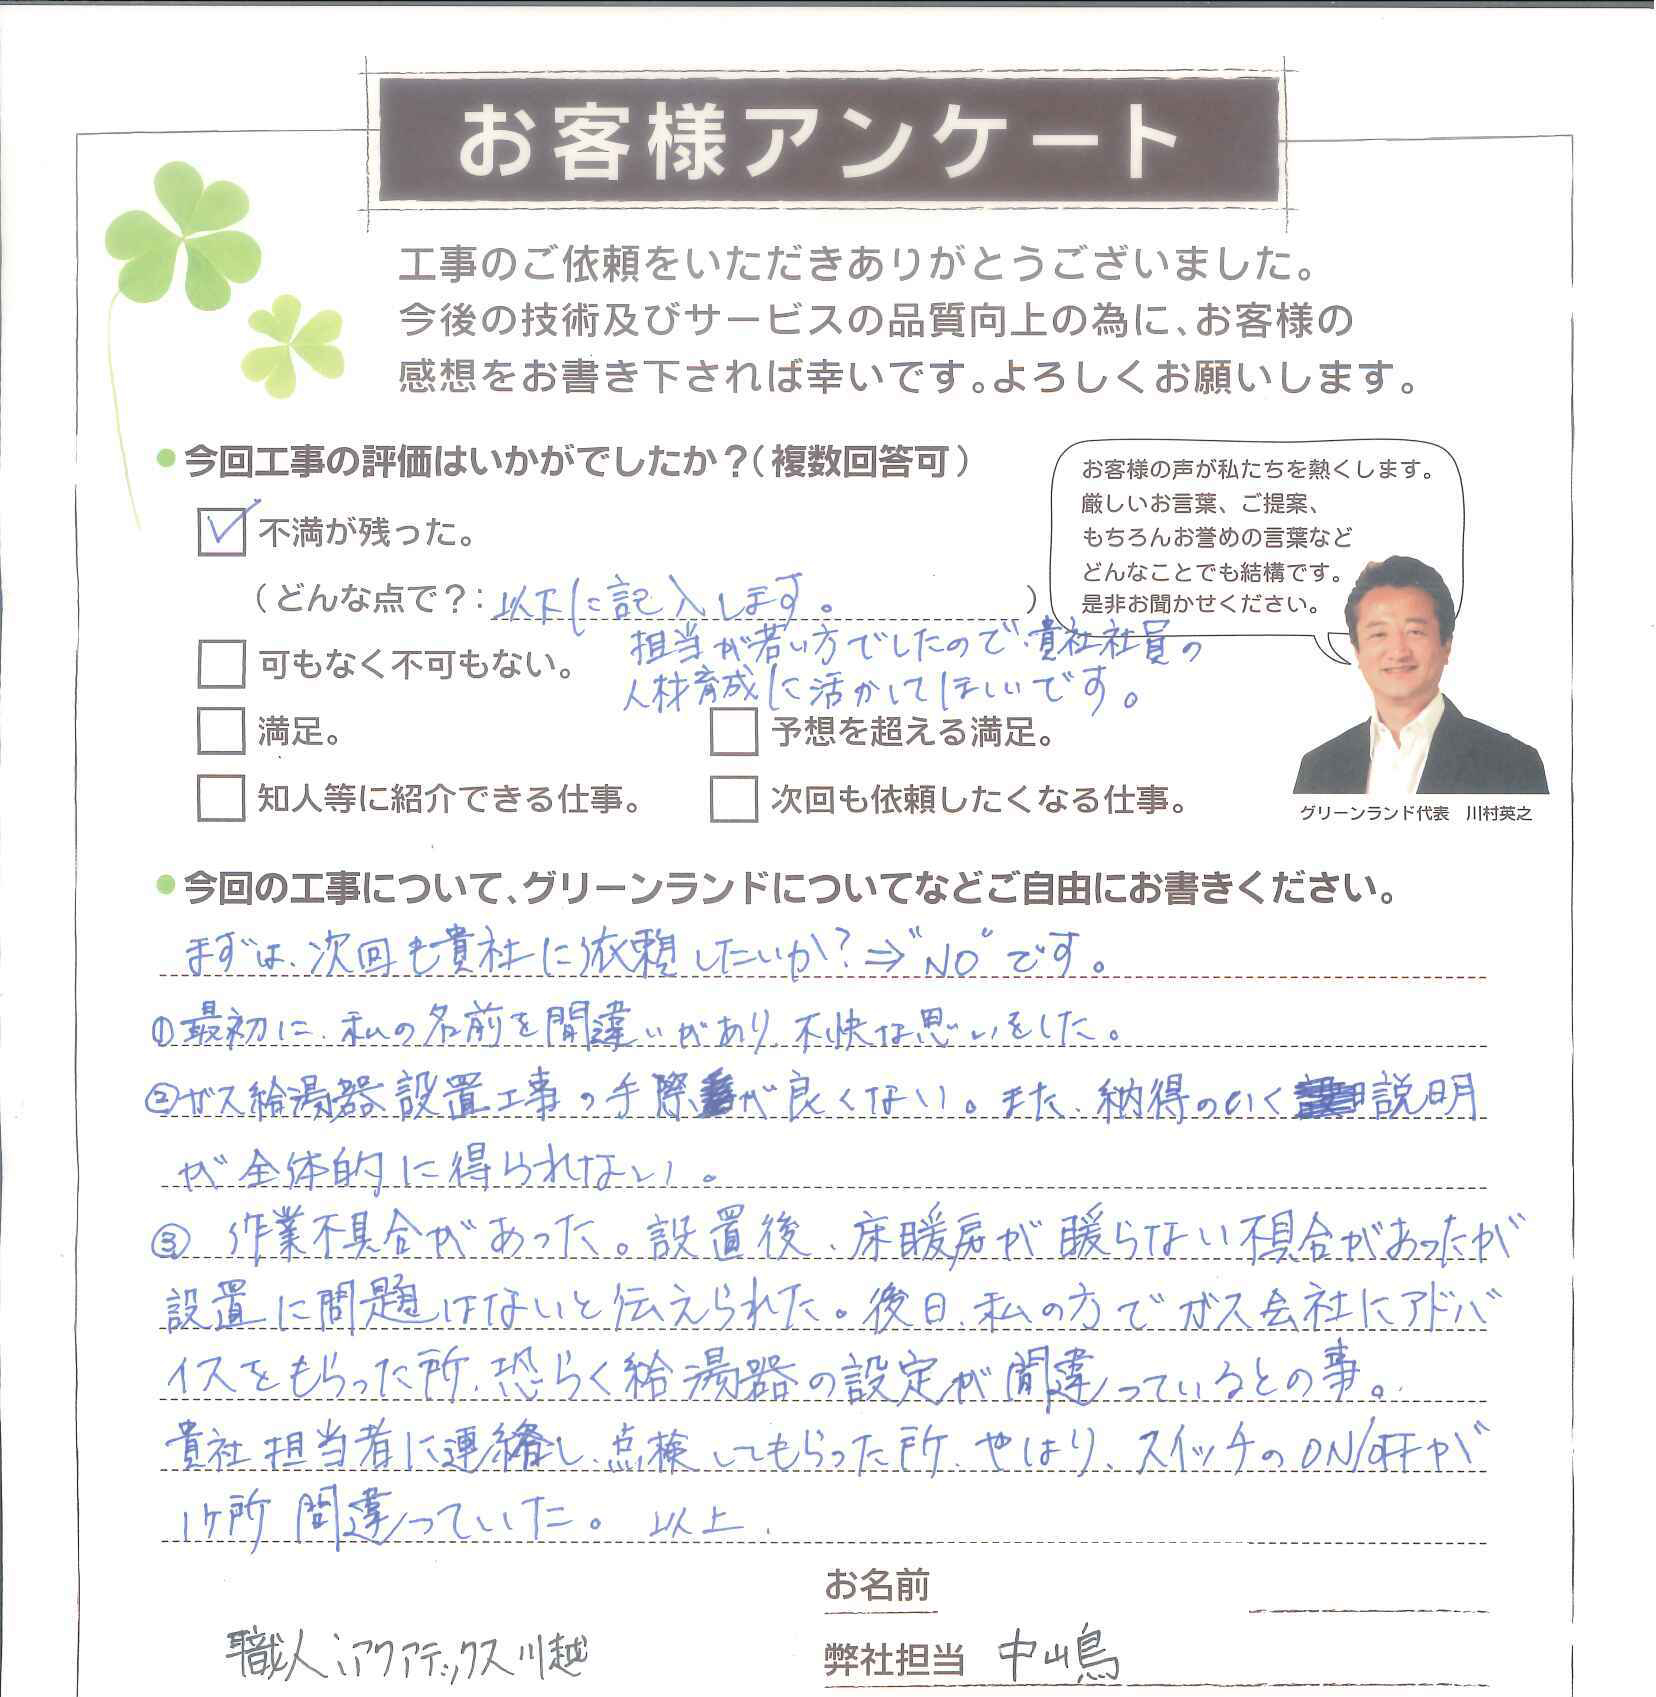 お客様アンケート
工事のご依頼をいただきありがとうございました。
今後の技術及びサービスの品質向上の為に、お客様の
感想をお書き下されば幸いです。よろしくお願いします。
今回工事の評価はいかがでしたか？（複数回答可）
不満が残った。
（どんな点で？：以下に記入します。）
担当が若い方でしたので、貴社社員の
人材育成に活かしてほしいです。
可もなく不可もない。
満足。
予想を超える満足。
知人等に紹介できる仕事。
次回も依頼したくなる仕事。
お客様の声が私たちを熱くします。
厳しいお言葉、ご提案、
もちろんお誉めの言葉など
どんなことでも結構です。
是非お聞かせください。
グリーンランド代表　川村英之
今回の工事について、グリーンランドについてなどご自由にお書きください。
まずは、次回も貴社に依頼したいか？⇒"NO"です。
①最初に、私の名前を間違いがあり、不快な思いをした。
②ガス給湯器設置工事の手際が良くない。また、納得のいく説明
が全体的に得られない。
③ 作業不具合があった。設置後、床暖房が暖らない不具合があったが
設置に問題はないと伝えられた。後日、私の方でガス会社にアドバ
イスをもらった所、恐らく給湯器の設定が間違っているとの事。
貴社担当者に連絡し、点検してもらった所、やはり、スイッチのON/OFFが
1ヶ所間違っていた。 以上、
お名前
職人:アクアテックス川越
弊社担当 中嶋